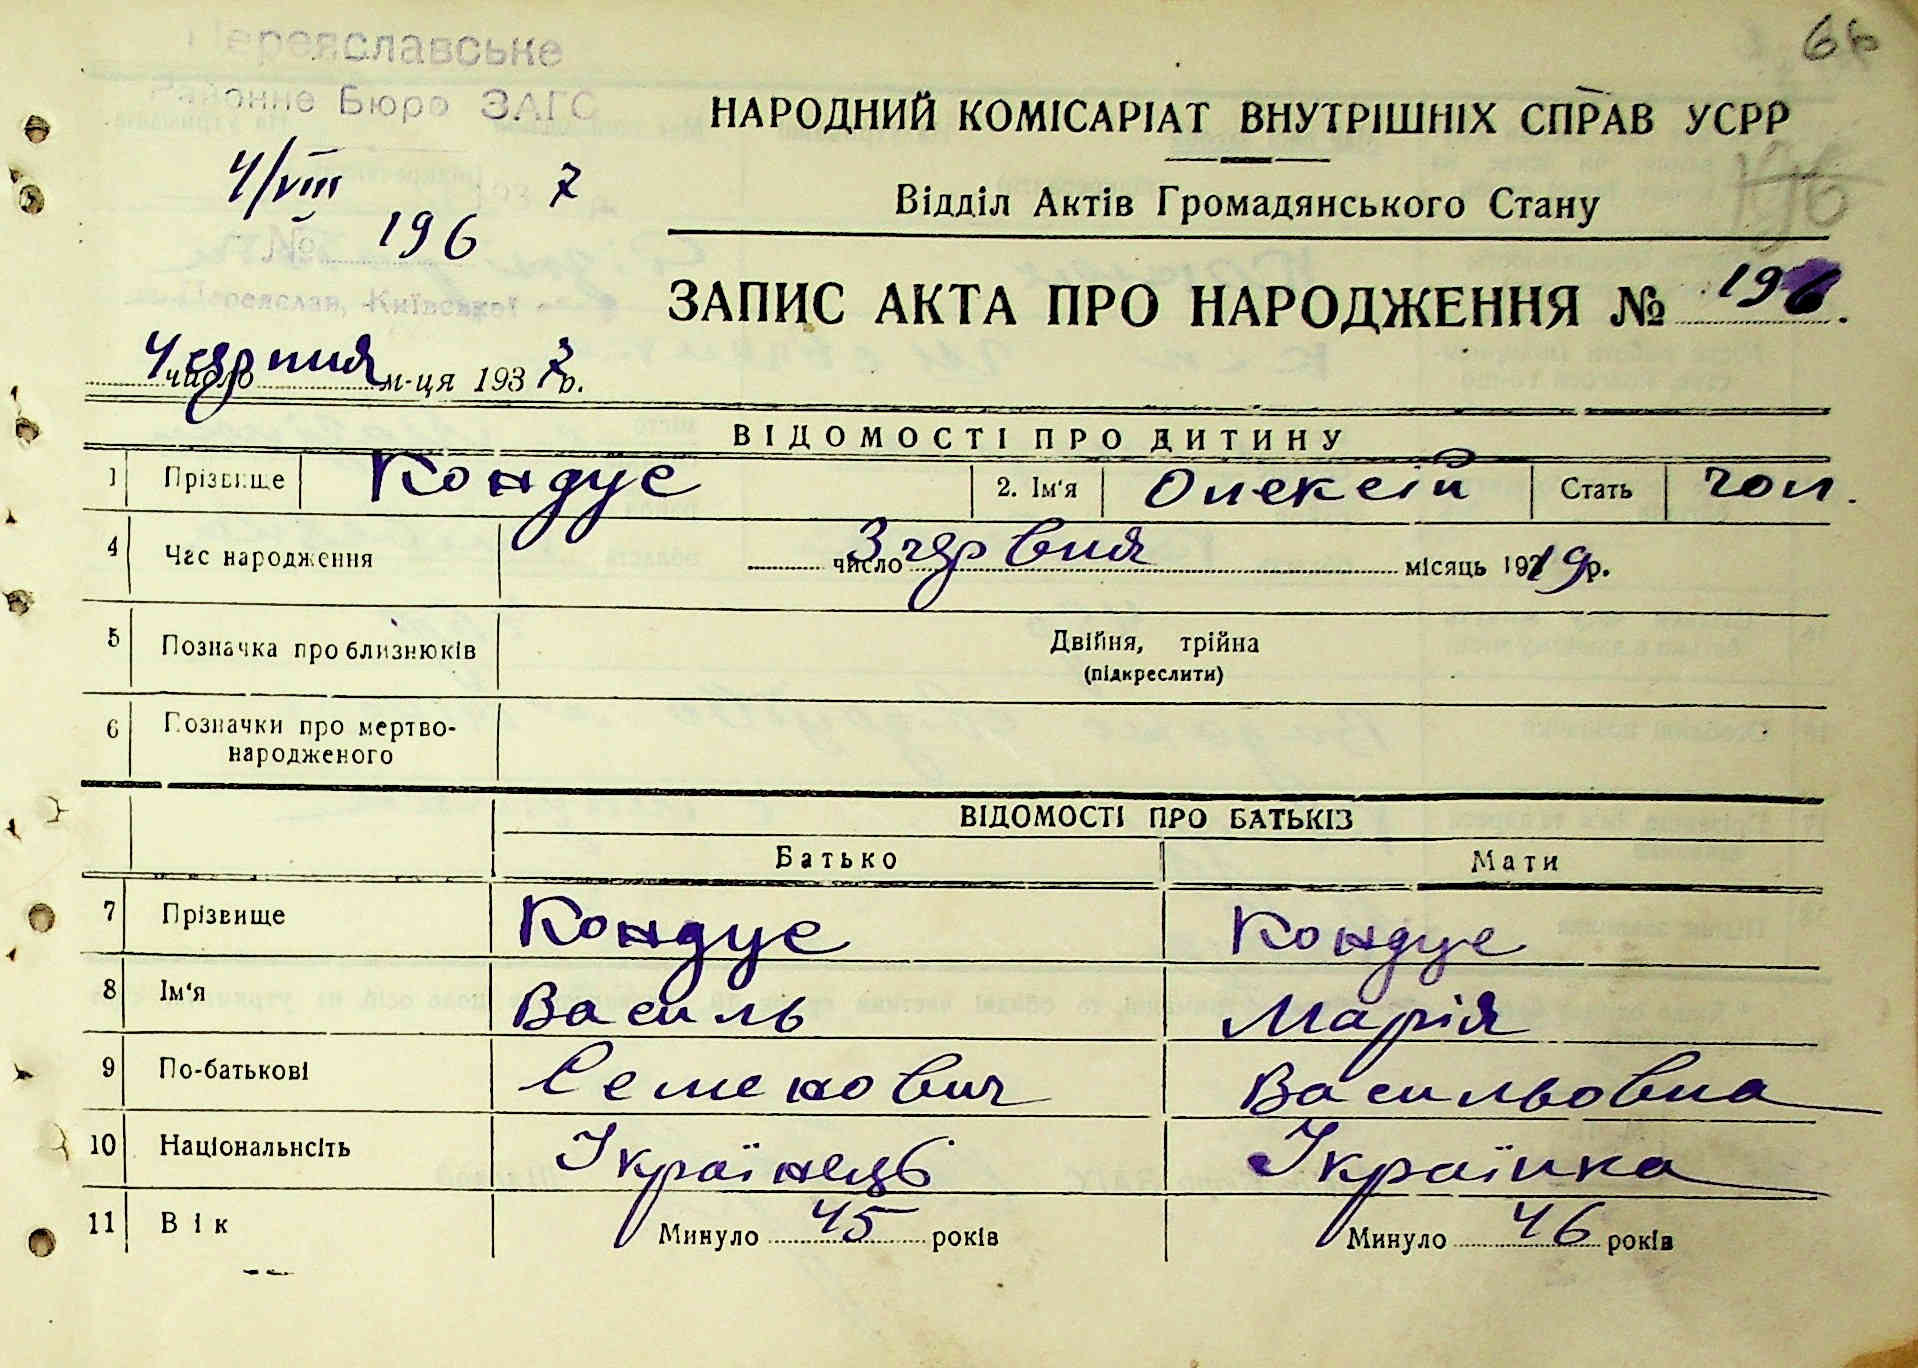 66
Переяславське
Районне Бюро ЗАГС
4/VIII 1937
№ 196
Переяслав, Київської
НАРОДНИЙ КОМІСАРІАТ ВНУТРІШНІХ СПРАВ УСРР
196
Відділ Актів Громадянського Стану
ЗАПИС АКТА ПРО НАРОДЖЕННЯ № 196.
4 число серпня м-ця 1937 р.
ВІДОМОСТІ ПРО ДИТИНУ
1 Прізвище Кондус 2. Ім'я Олексій Стать чол.
4 Час народження 3 число червня місяць 1919 р.
5 Позначка про близнюків Двійня, трійна
(підкреслити)
6 Позначки про мертво-
народженого
ВІДОМОСТІ ПРО БАТЬКІВ
Батько Мати
7 Прізвище Кондус Кондус
8 Ім'я Василь Марія
9 По-батькові Семенович Васильовна
10 Національнсіть Українець Українка
11 Вік Минуло 45 років Минуло 46 років